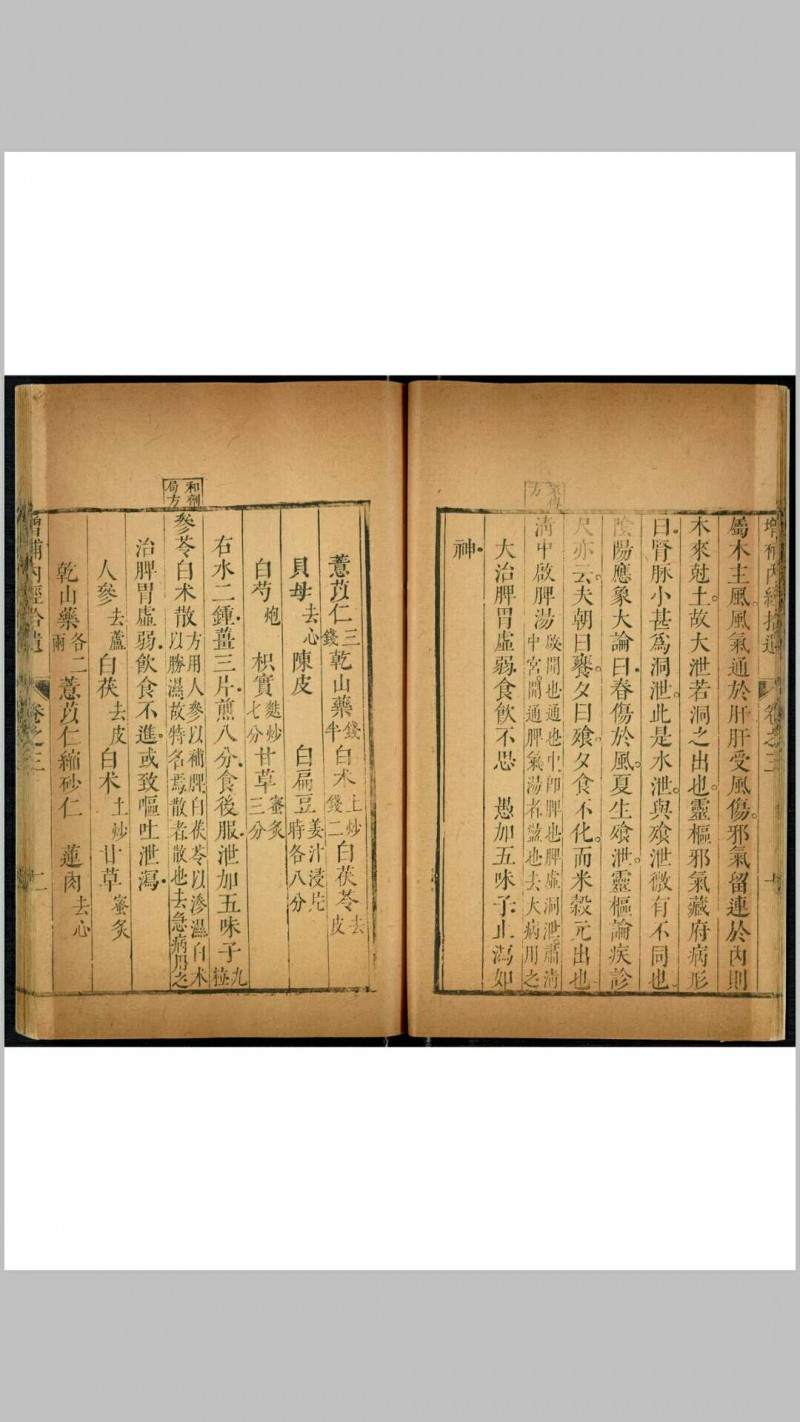 增補內經拾遺 卷之三
屬木主風。風氣通於肝肝受風傷。邪氣留連於內則
木來尅土。故大泄若洞之出也。靈樞邪氣藏府病形
曰。腎脉小甚爲洞泄。此是水泄。與飱泄微有不同也。
陰陽應象大論曰。春傷於風。夏生飱泄。靈樞論疾診
尺亦云。夫朝曰饔。夕曰飱。夕食不化。而米穀元出也
方
清中啟脾湯 啟開也通也中卽脾也脾虛洞泄肅清
中宮開通脾氣湯者盪也去大病用之
大治脾胃虛弱食飲不思 愚加五味子止瀉如
神。
薏苡仁三錢 乾山藥錢半 白术土炒二錢 白茯苓去皮
貝母去心 陳皮 白扁豆姜汁浸片時各八分
白芍炮 枳實麩炒七分 甘草蜜炙三分
右水二鍾。薑三片。煎八分。食後服。泄加五味子九粒
和劑局方
參苓白术散 方用人參以補脾白茯苓以滲濕白术
以勝濕故特名焉散者散也去急病用之
治脾胃虛弱。飲食不進。或致嘔吐泄瀉。
人參去蘆 白茯去皮 白术土炒 甘草蜜炙
乾山藥各二兩 薏苡仁 縮砂仁 蓮肉去心
增補內經拾遺 卷之三